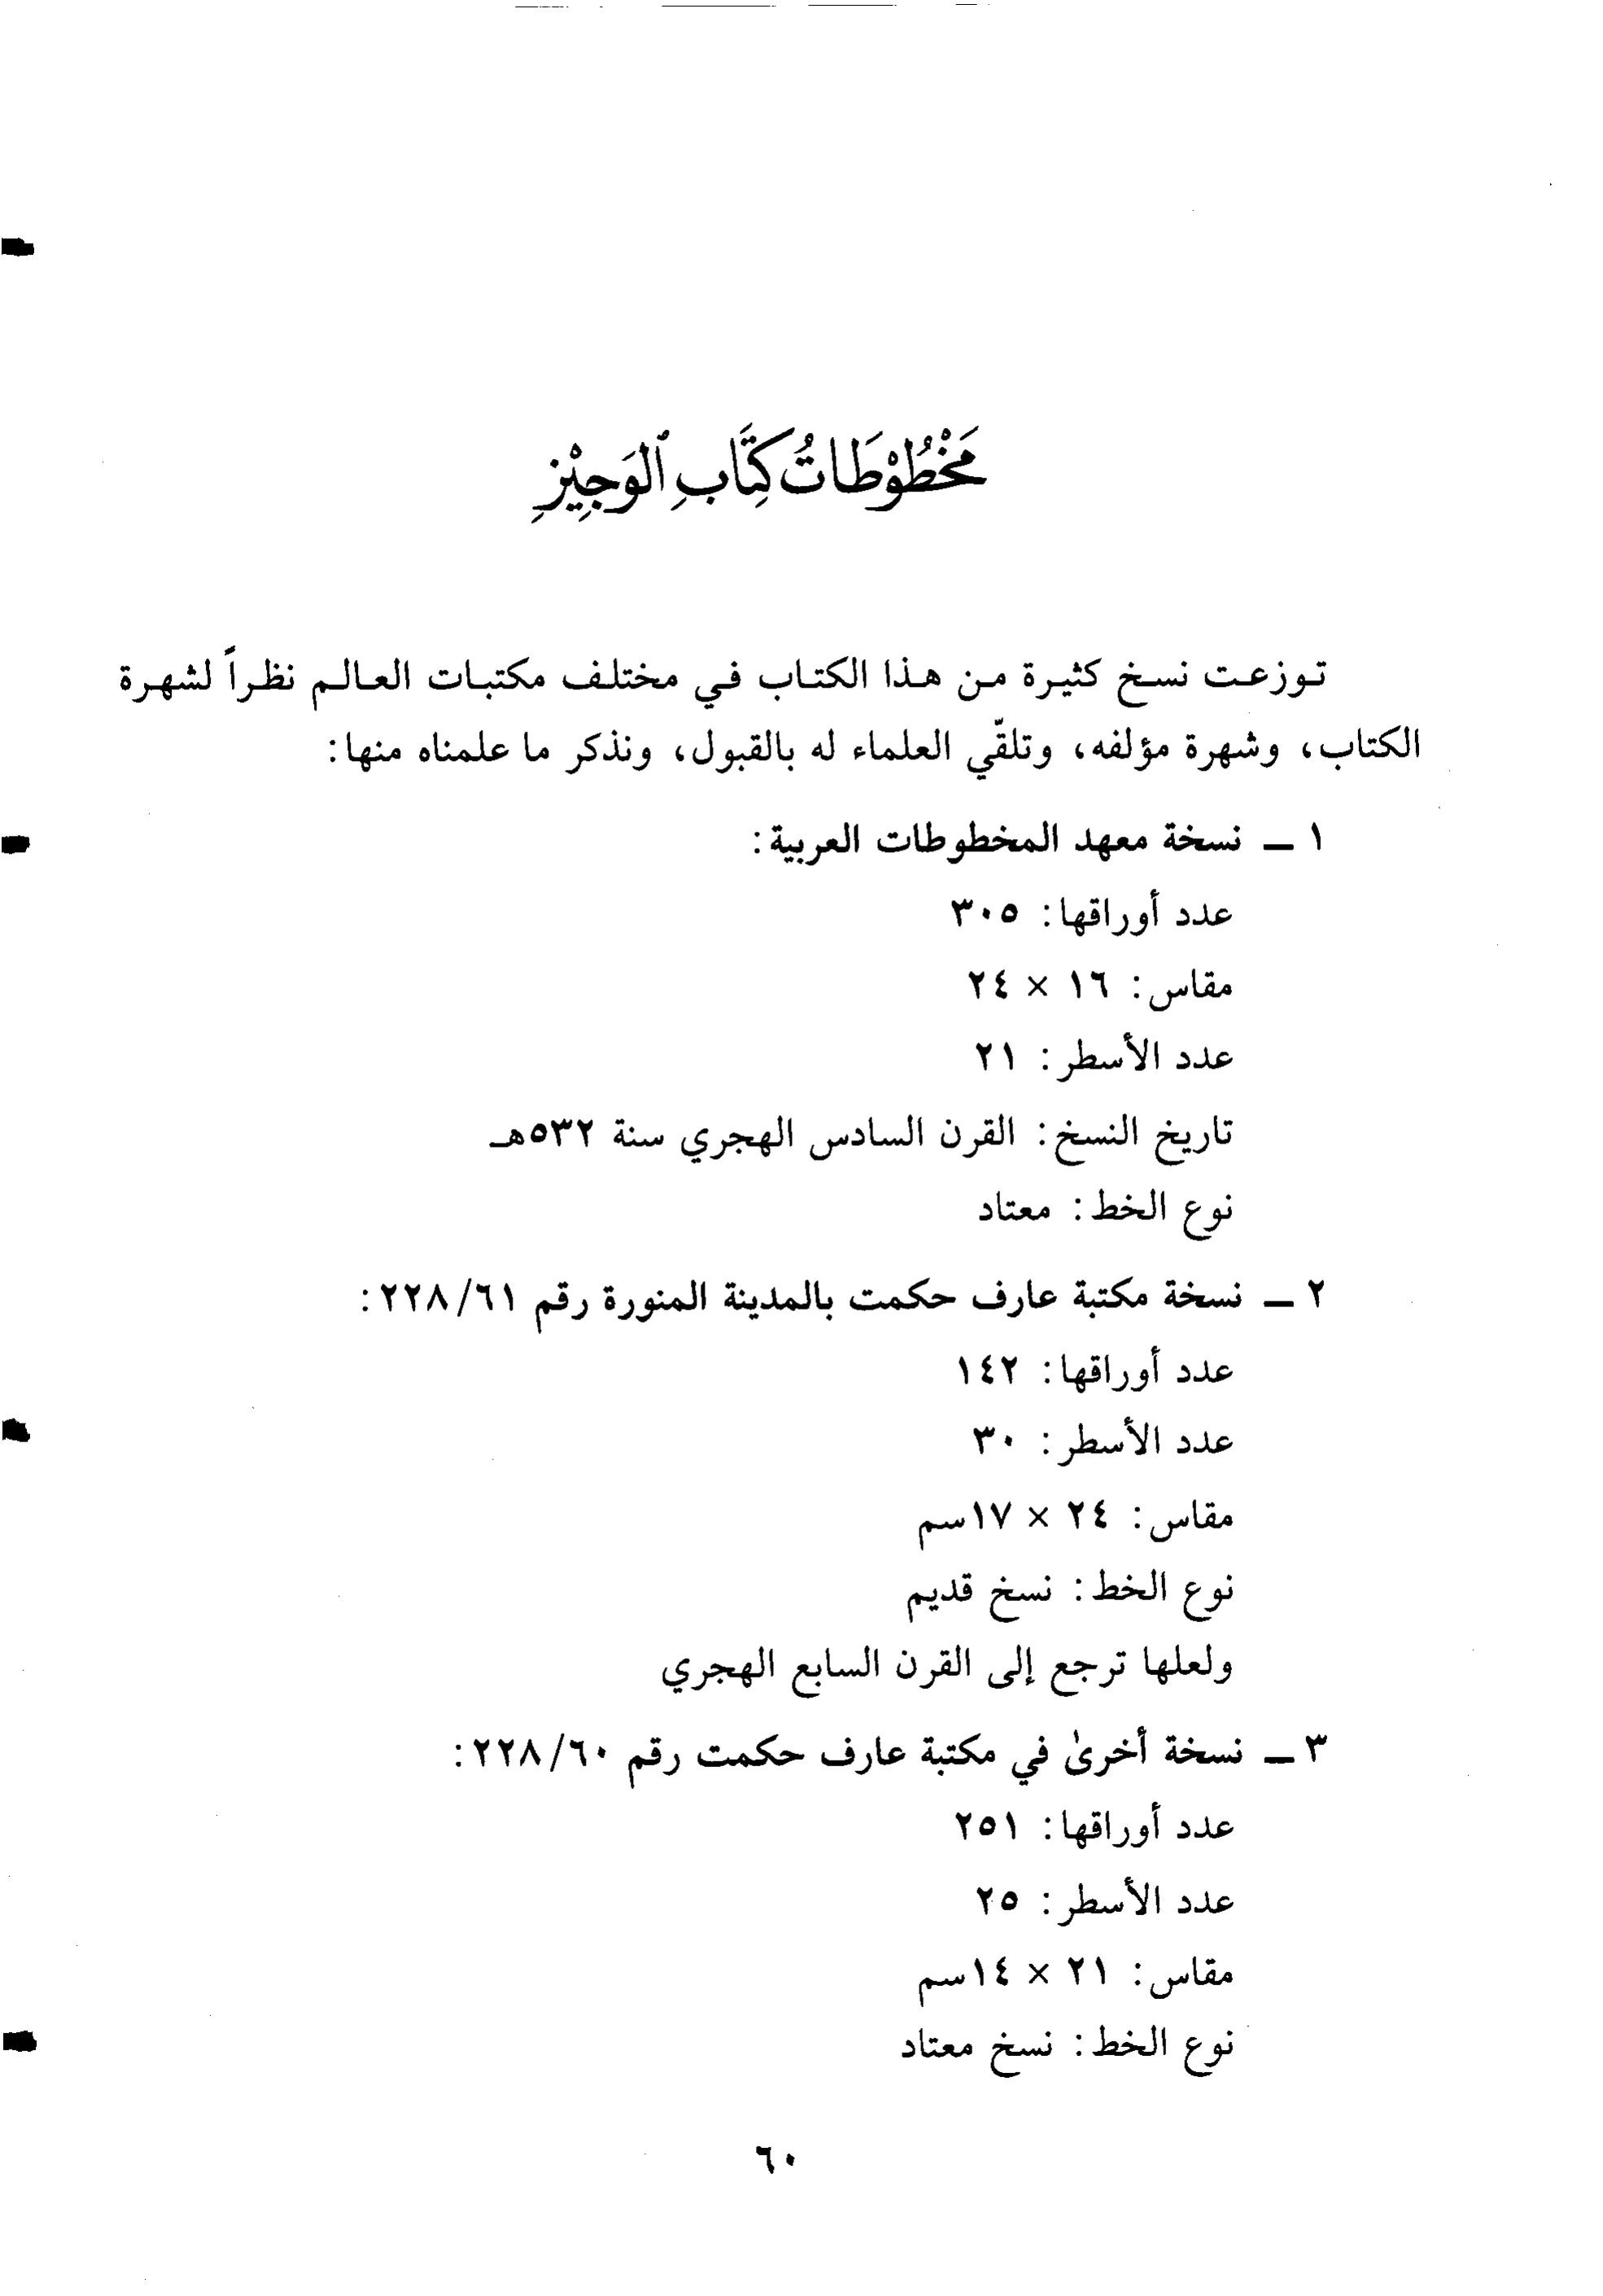 مَخْطُوْطَاتُ كِتَابِ ٱلوَجِيْزِ
توزعت نسخ كثيرة من هذا الكتاب في مختلف مكتبات العالم نظراً لشهرة
الكتاب، وشهرة مؤلفه، وتلقّي العلماء له بالقبول، ونذكر ما علمناه منها:
١ ـ نسخة معهد المخطوطات العربية:
عدد أوراقها: ٣٠٥
مقاس: ١٦ × ٢٤
عدد الأسطر: ٢١
تاريخ النسخ: القرن السادس الهجري سنة ٥٣٢هـ
نوع الخط: معتاد
٢ ـ نسخة مكتبة عارف حكمت بالمدينة المنورة رقم ٢٢٨/٦١:
عدد أوراقها: ١٤٢
عدد الأسطر: ٣٠
مقاس: ٢٤ × ١٧سم
نوع الخط: نسخ قديم
ولعلها ترجع إلى القرن السابع الهجري
٣ ـ نسخة أخرىٰ في مكتبة عارف حكمت رقم ٢٢٨/٦٠:
عدد أوراقها: ٢٥١
عدد الأسطر: ٢٥
مقاس: ٢١ × ١٤سم
نوع الخط: نسخ معتاد
٦٠